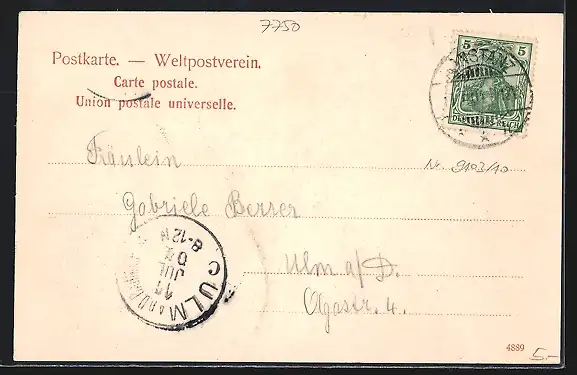 7750
Postkarte. — Weltpostverein.
Carte postale.
Union postale universelle.
5 5
DEUTSCHES REICH
KONSTANZ
Fräulein
Nr. 9103/10
Gabriele Berser
Ulm a/D.
Olgastr. 4.
ULM
11
JUL
04
8-12 N
4889
5.-